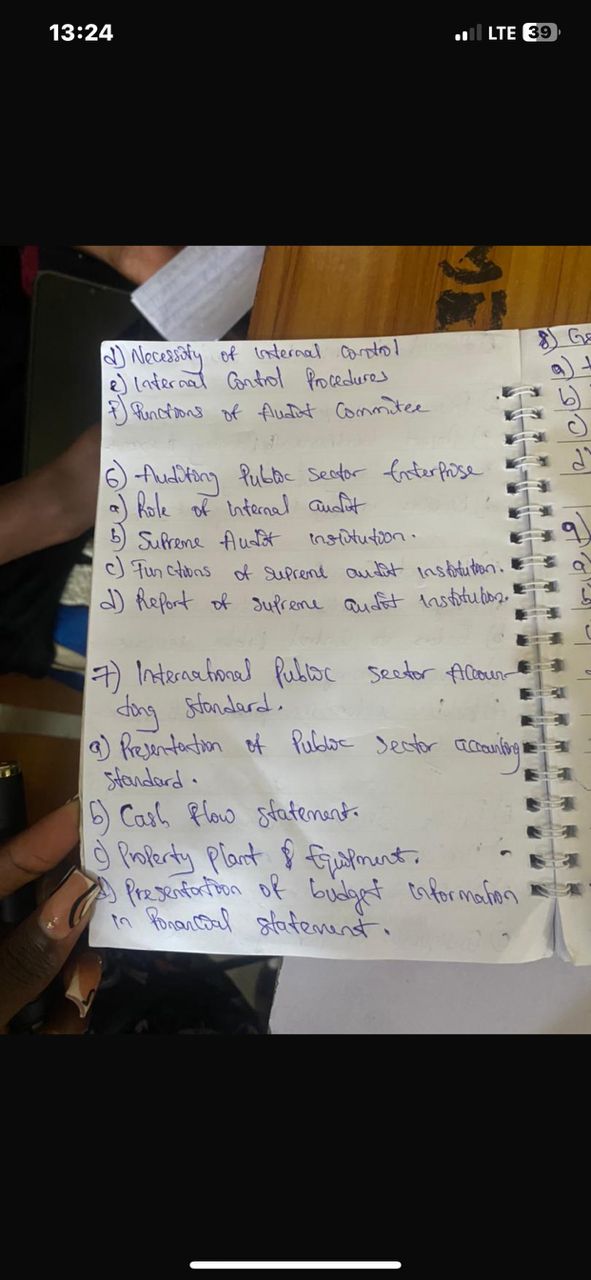 13:24
LTE 39
d) Necessity of internal control
e) Internal Control Procedures
f) Functions of Audit Commitee
6) Auditing Public sector Enterprise
a) Role of internal audit
b) Supreme Audit institution.
c) Functions of supreme audit institution.
d) Report of supreme audit institution.
7) International Public sector Accoun-
ting standard.
a) Presentation of Public sector accounting
standard.
b) Cash flow statement.
c) Property plant & Equipment.
d) Presentation of budget information
in financial statement.
8)
a)
b)
c)
d)
9)
a)